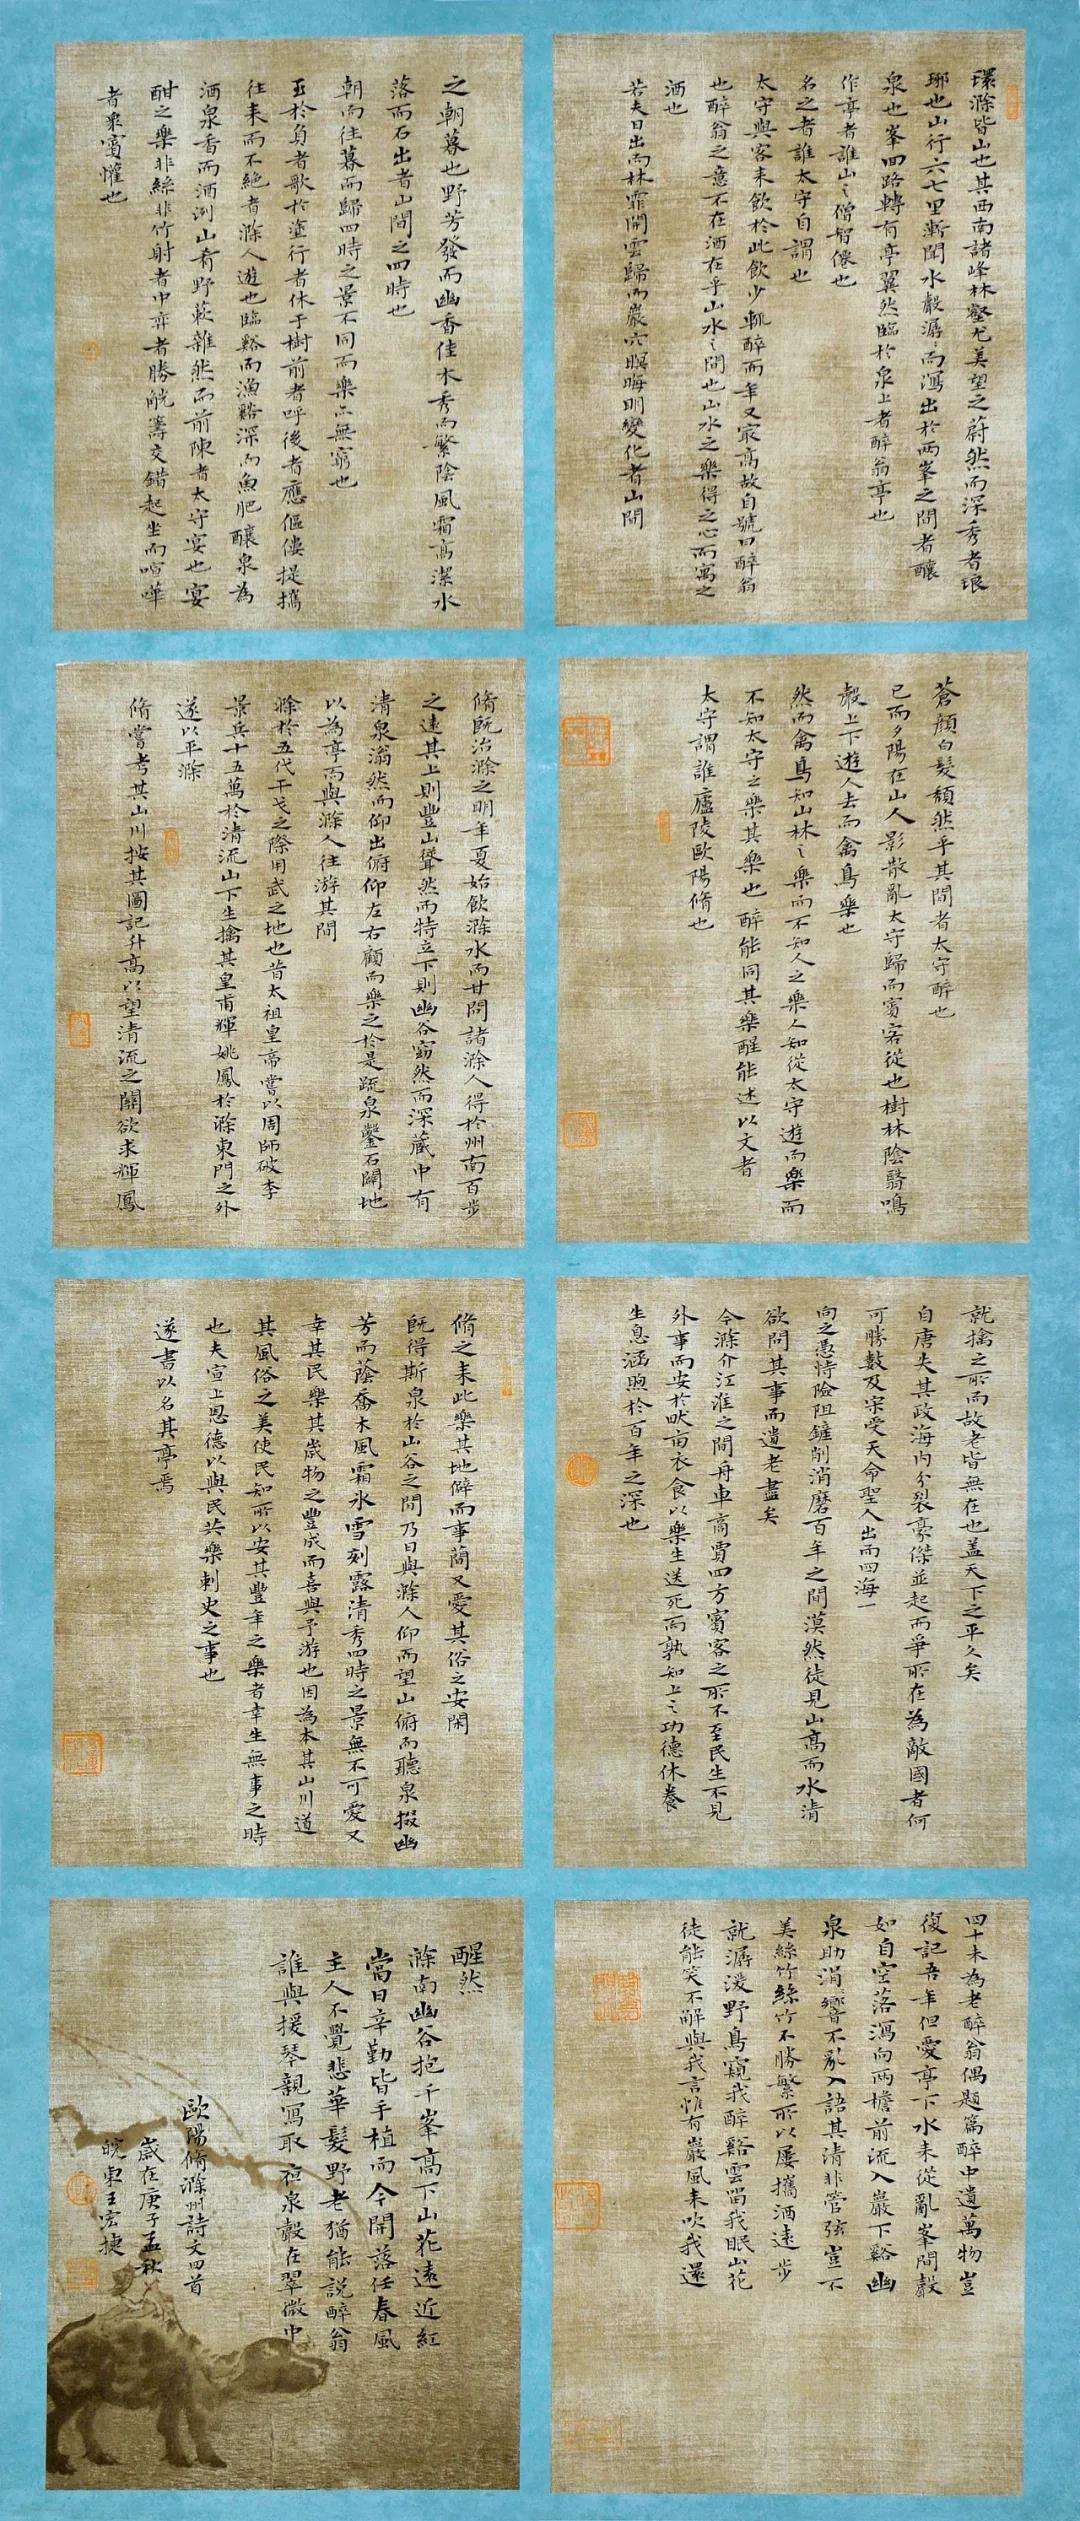 環滁皆山也其西南諸峰林壑尤美望之蔚然而深秀者琅
琊也山行六七里漸聞水聲潺〻而瀉出於兩峯之間者釀
泉也峯回路轉有亭翼然臨於泉上者醉翁亭也
作亭者誰山〻僧智僊也
名之者誰太守自謂也
太守與客来飲於此飲少輒醉而年又最高故自號曰醉翁
也醉翁之意不在酒在乎山水〻間也山水之樂得之心而寓之
酒也
若夫日出而林霏開雲歸而巖穴暝晦明變化者山間
之朝暮也野芳發而幽香佳木秀而繁陰風霜高潔水
落而石出者山間之四時也
朝而往暮而歸四時之景不同而樂亦無窮也
至於負者歌於塗行者休于樹前者呼後者應傴僂提攜
往来而不絶者滁人遊也臨谿而漁谿深而魚肥釀泉為
酒泉香而酒洌山肴野蔌雜然而前陳者太守宴也宴
酣之樂非絲非竹射者中弈者勝觥籌交錯起坐而喧嘩
者衆賓懽也
蒼顔白髮頹然乎其間者太守醉也
已而夕陽在山人影散亂太守歸而賓客從也樹林陰翳鳴
聲上下遊人去而禽鳥樂也
然而禽鳥知山林〻樂而不知人之樂人知從太守遊而樂而
不知太守之樂其樂也醉能同其樂醒能述以文者
太守謂誰廬陵歐陽脩也
脩既治滁之明年夏始飲滁水而甘問諸滁人得於州南百步
之遠其上則豐山聳然而特立下則幽谷窈然而深藏中有
清泉滃然而仰出俯仰左右顧而樂之於是疏泉鑿石闢地
以為亭而與滁人往游其間
滁於五代干戈之際用武之地也昔太祖皇帝嘗以周師破李
景兵十五萬於清流山下生擒其皇甫輝姚鳳於滁東門之外
遂以平滁
脩嘗考其山川按其圖記升高以望清流之關欲求輝鳳
就擒之所而故老皆無在也盖天下之平久矣
自唐失其政海内分裂豪傑並起而爭所在為敵國者何
可勝數及宋受天命聖人出而四海一
向之憑恃險阻鏟削消磨百年之間漠然徒見山高而水清
欲問其事而遺老盡矣
今滁介江淮之間舟車商賈四方賓客之所不至民生不見
外事而安於畎亩衣食以樂生送死而孰知上〻功德休養
生息涵煦於百年之深也
脩之来此樂其地僻而事蕑又愛其俗之安閑
既得斯泉於山谷之間乃日與滁人仰而望山俯而聽泉掇幽
芳而蔭喬木風霜氷雪刻露清秀四時之景無不可愛又
幸其民樂其嵗物之豐成而喜與予游也因為本其山川道
其風俗之美使民知所以安其豐年之樂者幸生無事之時
也夫宣上恩德以與民共樂刺史之事也
遂書以名其亭焉
四十未為老醉翁偶題篇醉中遺萬物豈
復記吾年但愛亭下水来從亂峯間聲
如自空落瀉向兩檐前流入巖下谿幽
泉助涓響不亂人語其清非管弦豈不
美絲竹絲竹不勝繁所以屢攜酒遠步
就潺湲野鳥窺我醉谿雲留我眠山花
徒能笑不解與我言惟有巖風来吹我還
醒然
滁南幽谷抱千峯高下山花遠近紅
當日辛勤皆手植而今開落任春風
主人不覺悲華髮野老猶能説醉翁
誰與援琴親寫取夜泉聲在翠微中
歐陽脩滁州詩文四首
嵗在庚子孟秋
皖東王宏捷